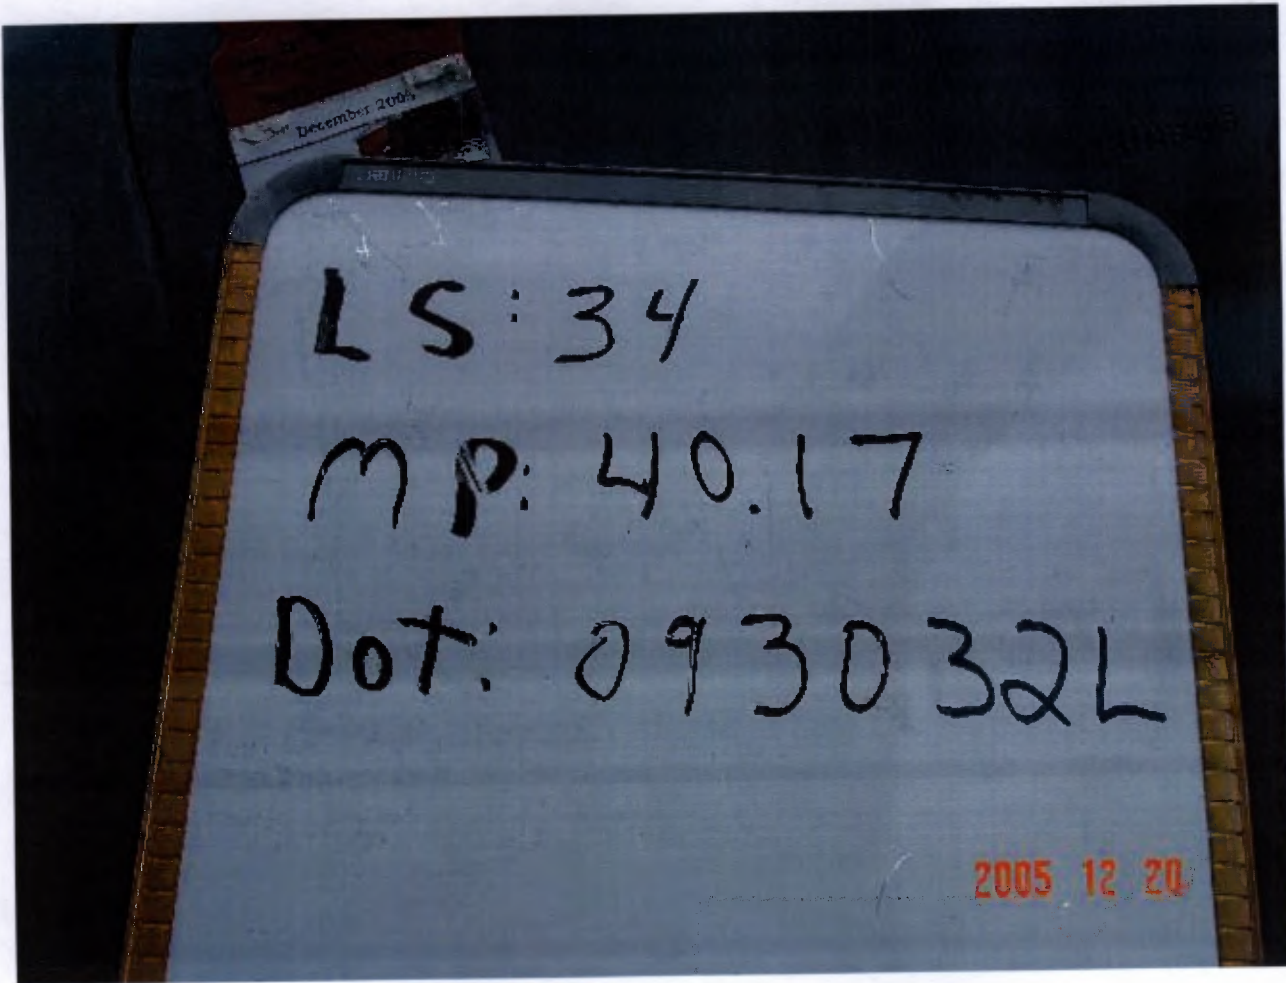 December 2005
LS: 34
MP: 40.17
Dot: 093032L
2005 12 20